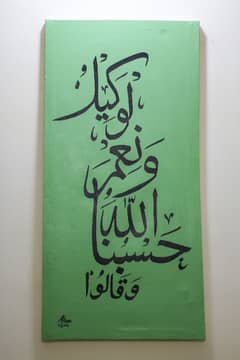 وَقَالُوا
حَسْبُنَا
اللَّهُ
وَنِعْمَ
لوَكِيلُ